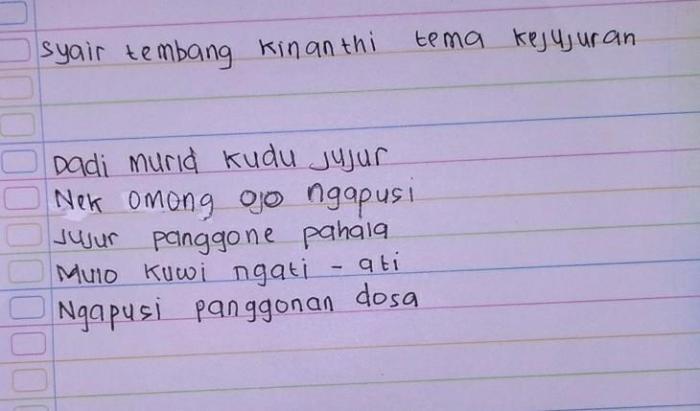 syair tembang Kinanthi tema kejujuran
Dadi murid kudu jujur
Nek omong ojo ngapusi
Jujur panggone pahala
Mulo kuwi ngati - ati
Ngapusi panggonan dosa